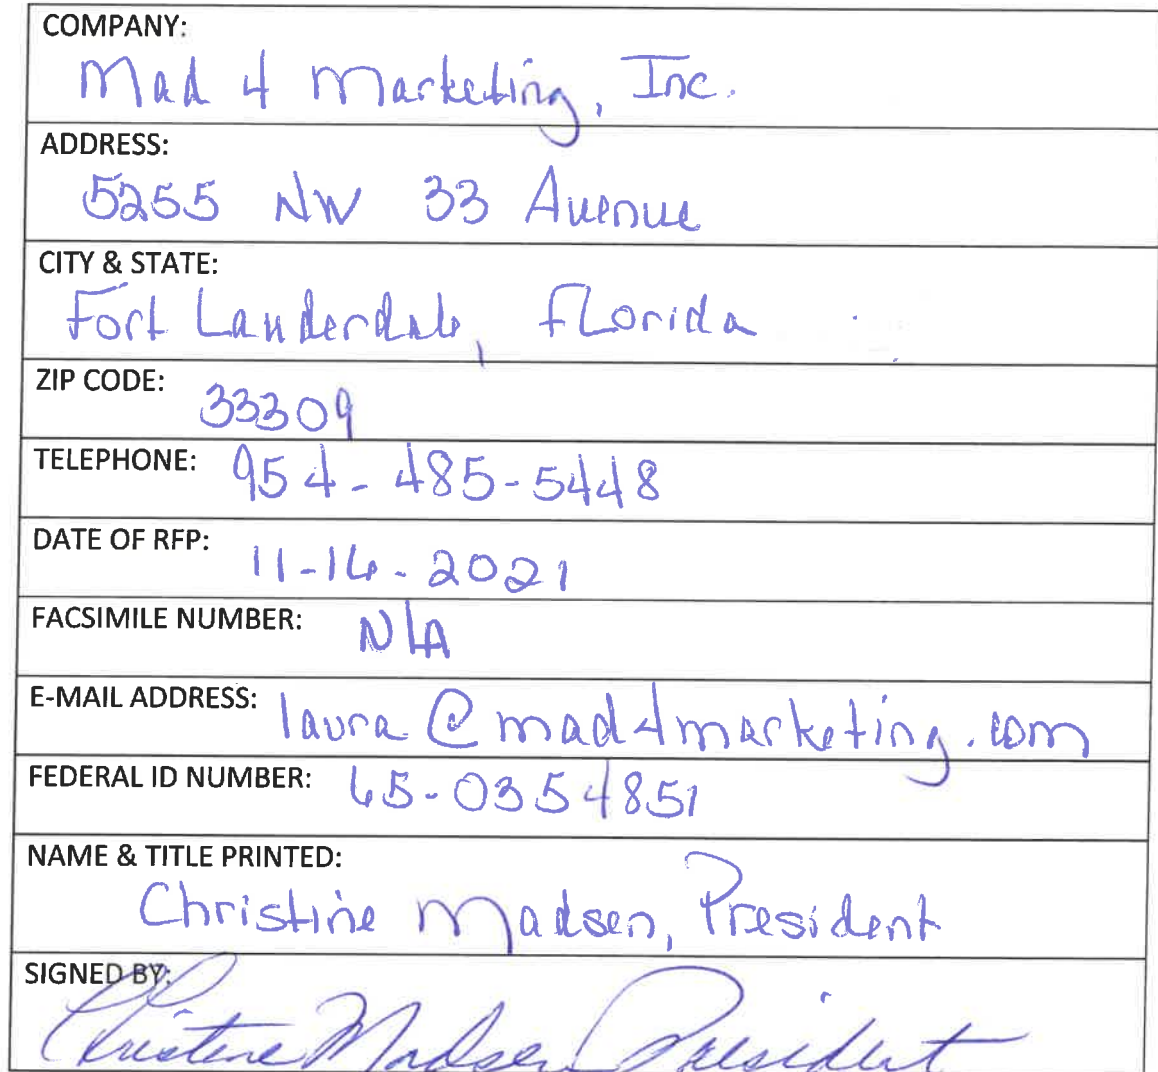 COMPANY:
Mad 4 Marketing, Inc.
ADDRESS:
5255 NW 33 Avenue
CITY & STATE:
Fort Lauderdale, Florida
ZIP CODE: 33309
TELEPHONE: 954-485-5448
DATE OF RFP: 11-16-2021
FACSIMILE NUMBER: N/A
E-MAIL ADDRESS: laura@mad4marketing.com
FEDERAL ID NUMBER: 65-0354851
NAME & TITLE PRINTED:
Christine Madsen, President
SIGNED BY:
Christine Madsen President